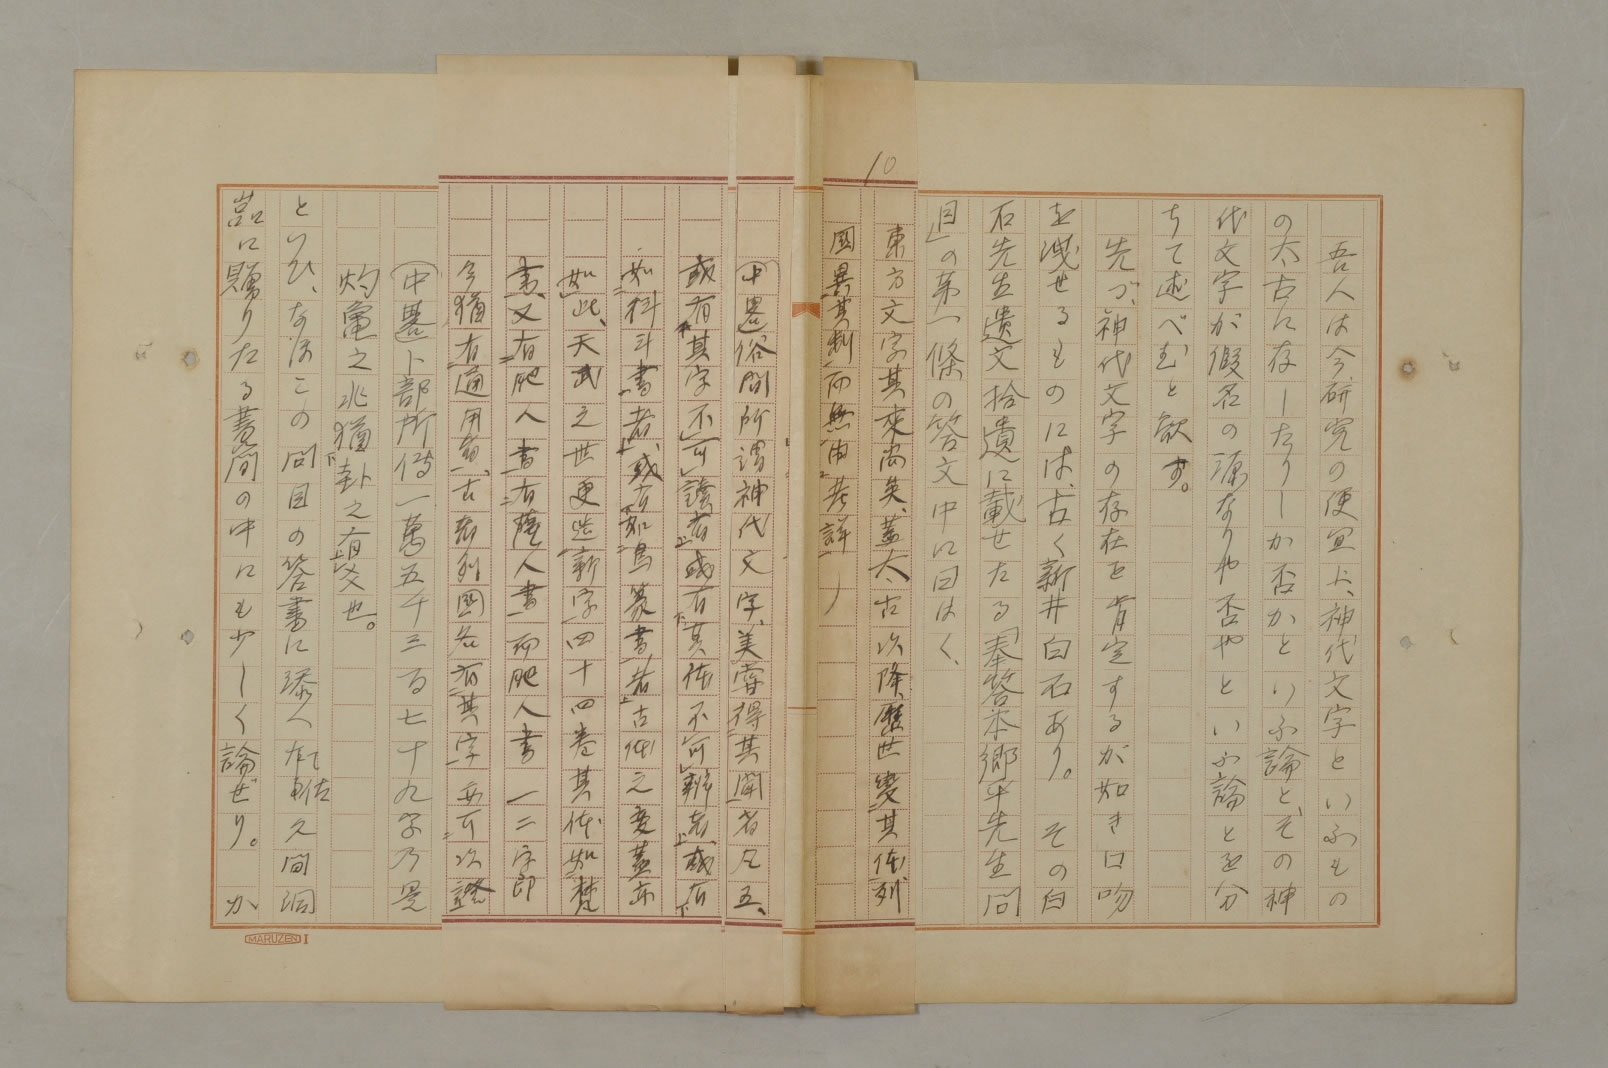 10
吾人は今、研究の便宜上、神代文字といふもの
の太古に存したりしか否かといふ論と、その神
代文字が假名の源なりや否やといふ論とを分
ちて述べむと欲す。
先づ、神代文字の存在を肯定するが如き口吻
を洩せるものには、古く新井白石あり。その白
石先生遺文拾遺に載せたる「奉答本郷平先生問
目」の第一條の答文中に曰はく、
東方文字其來尚矣、蓋太古以降、歷世變其体、列
國異其制、而無由考詳、
(中畧)俗間所謂神代文字、美嘗得其聞者凡五、
或有其字不可讀者、或有其体不可辨者、或有
如科斗書者、或有如鳥篆書者、古体之變蓋亦
如此、天武之世更造新字四十四卷其体如梵
書、又有肥人書、有薩人書、而肥人書一二字即
今猶有通用焉、古者列國各有其字、亦可以證
(中畧)卜部所傳一萬五千三百七十九字乃是
灼龜之兆猶卦之有爻也。
といひ、なほこの問目の答書に添へたる佐久間洞
巖に贈りたる書簡の中にも少しく論ぜり。か
MARUZEN I